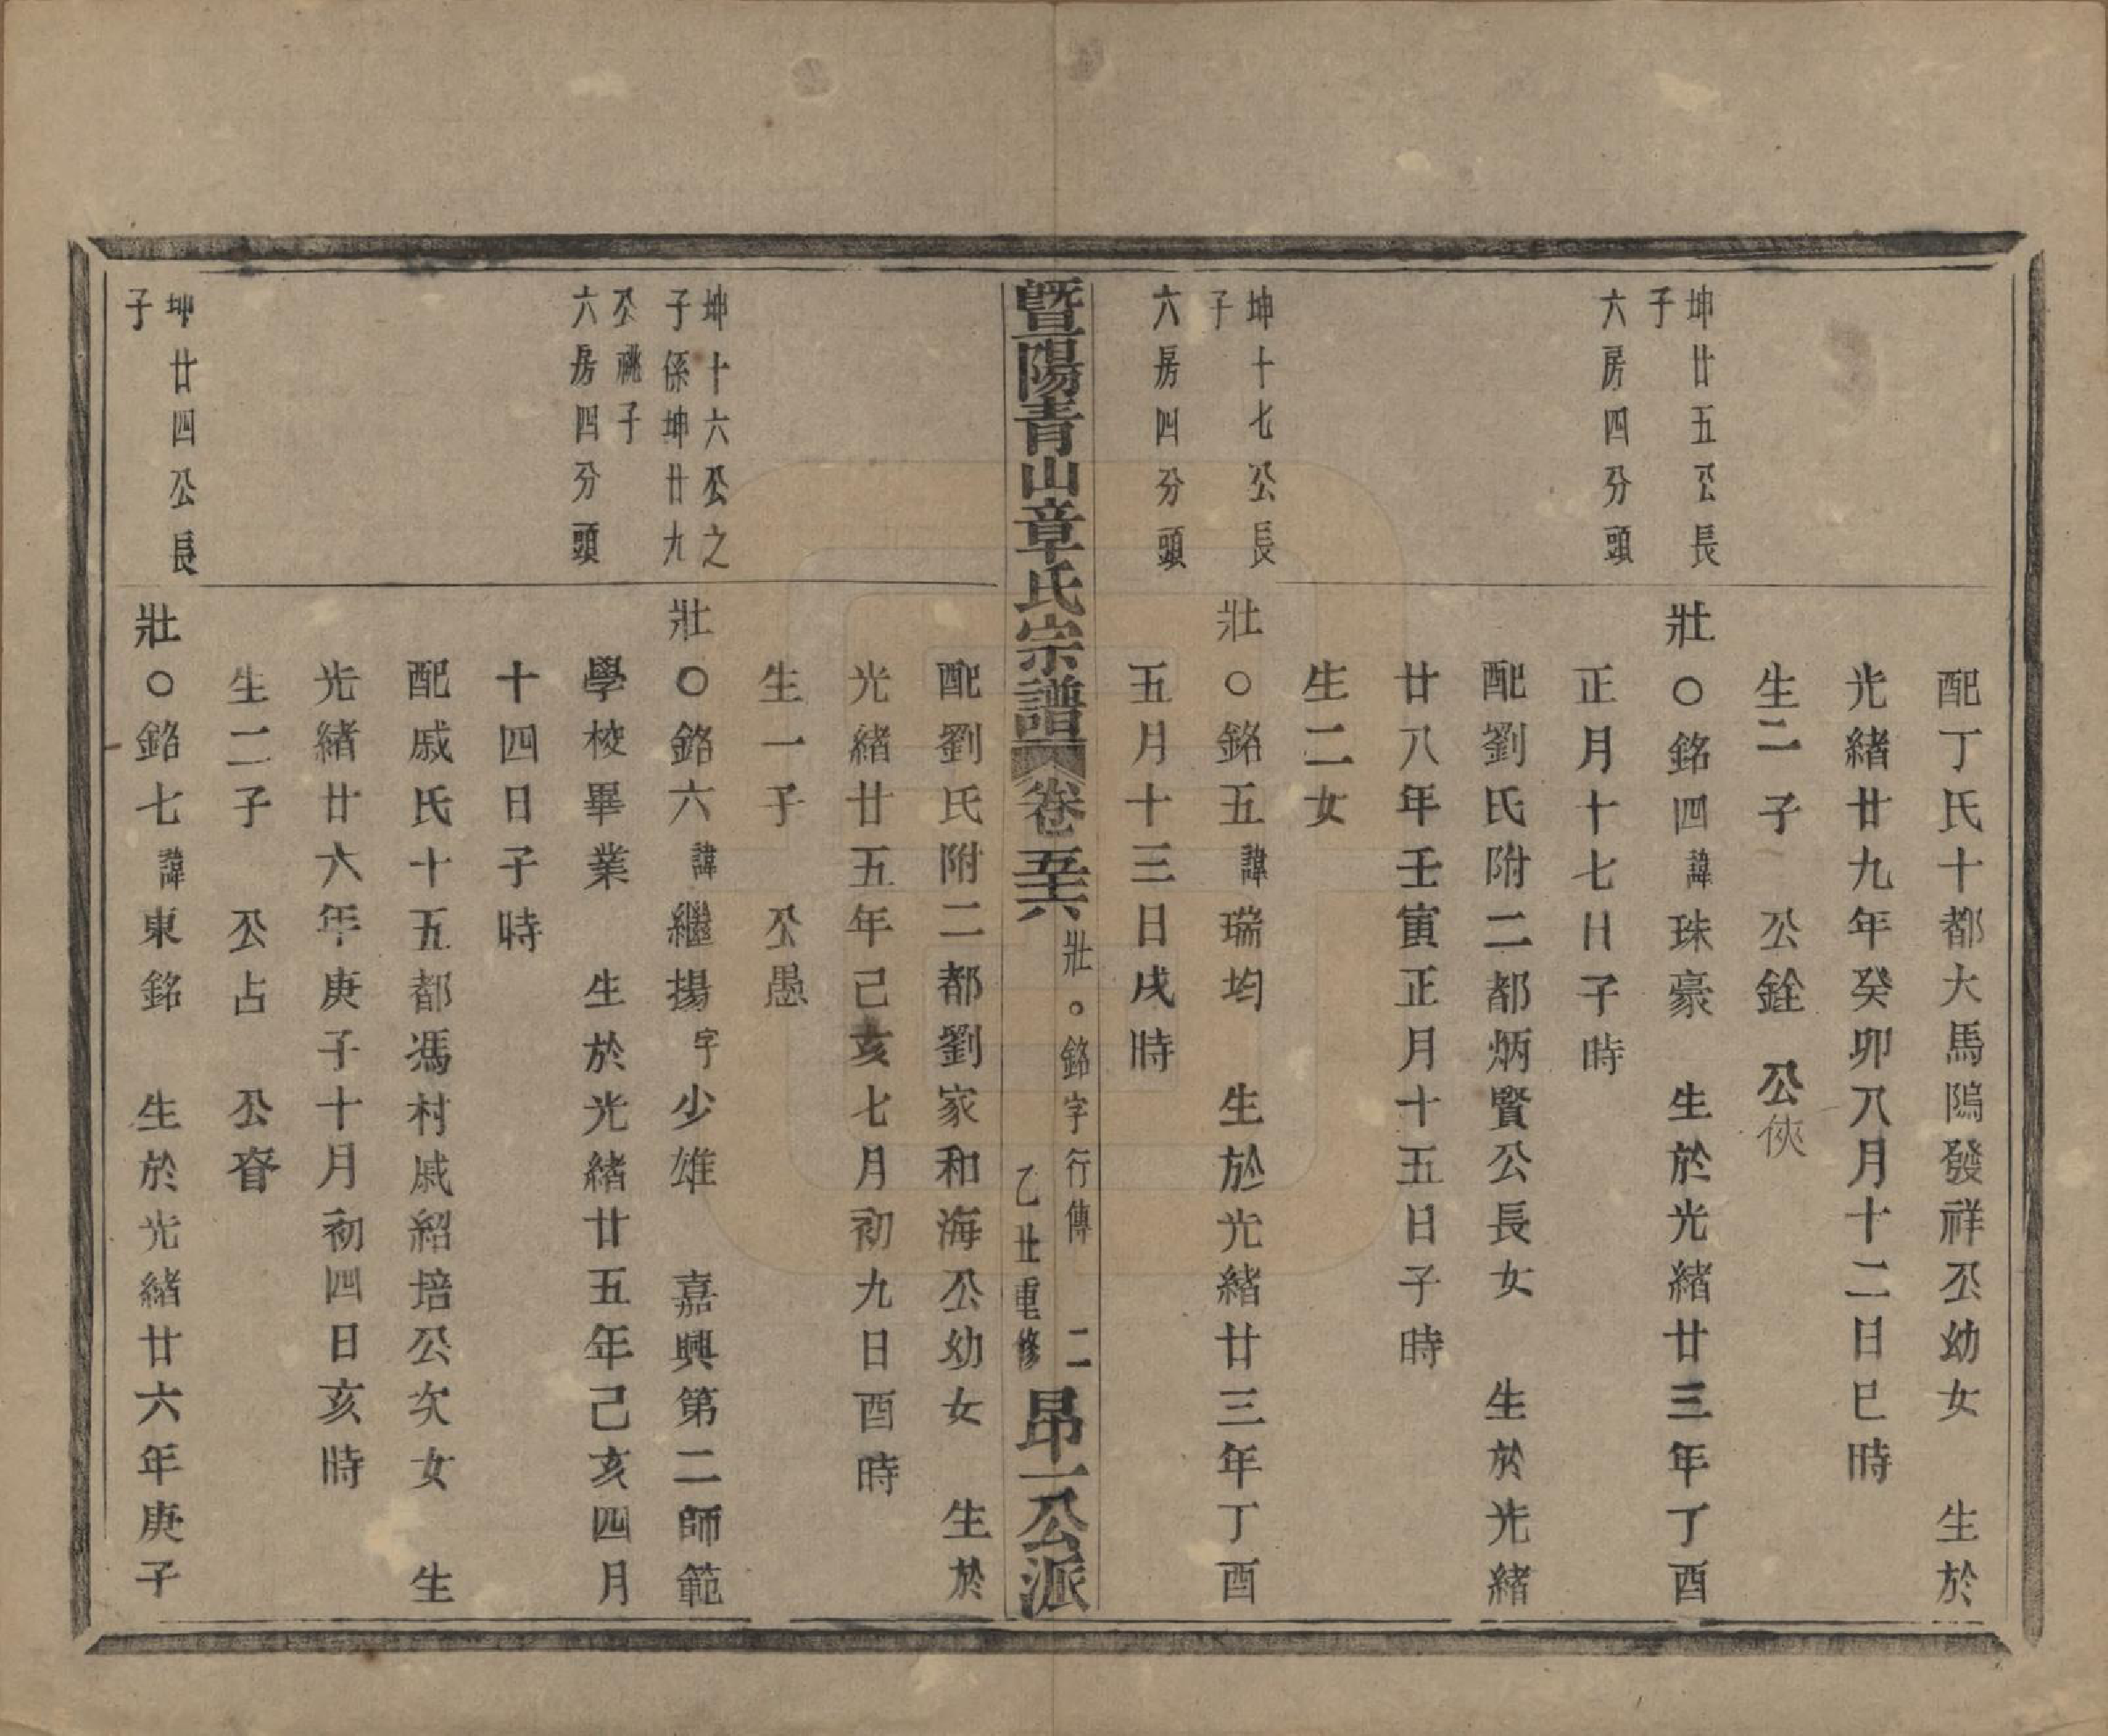 配丁氏十都大馬鴭發祥公幼女　生於
光緒廿九年癸卯八月十二日巳時
生二子　公銓　公俠
坤廿五公長
子
六房四分頭
壯○銘四諱珠豪　生於光緒廿三年丁酉
正月十七日子時
配劉氏附二都炳賢公長女　生於光緒
廿八年壬寅正月十五日子時
生二女
坤十七公長
子
六房四分頭
壯○銘五諱瑞均　生於光緒廿三年丁酉
五月十三日戌時
暨陽青山章氏宗譜　卷五十六　壯○銘字行傳　二　乙丑重修　昂一公派
配劉氏附二都劉家和海公幼女　生於
光緒廿五年己亥七月初九日酉時
生一子　公愚
坤十六公之
子係坤廿九
公祧子
六房四分頭
壯○銘六諱繼揚字少雄　嘉興第二師範
學校畢業　生於光緒廿五年己亥四月
十四日子時
配戚氏十五都馮村戚紹培公次女　生
光緒廿六年庚子十月初四日亥時
生二子　公占　公睿
坤廿四公長
子
壯○銘七諱東銘　生於光緒廿六年庚子